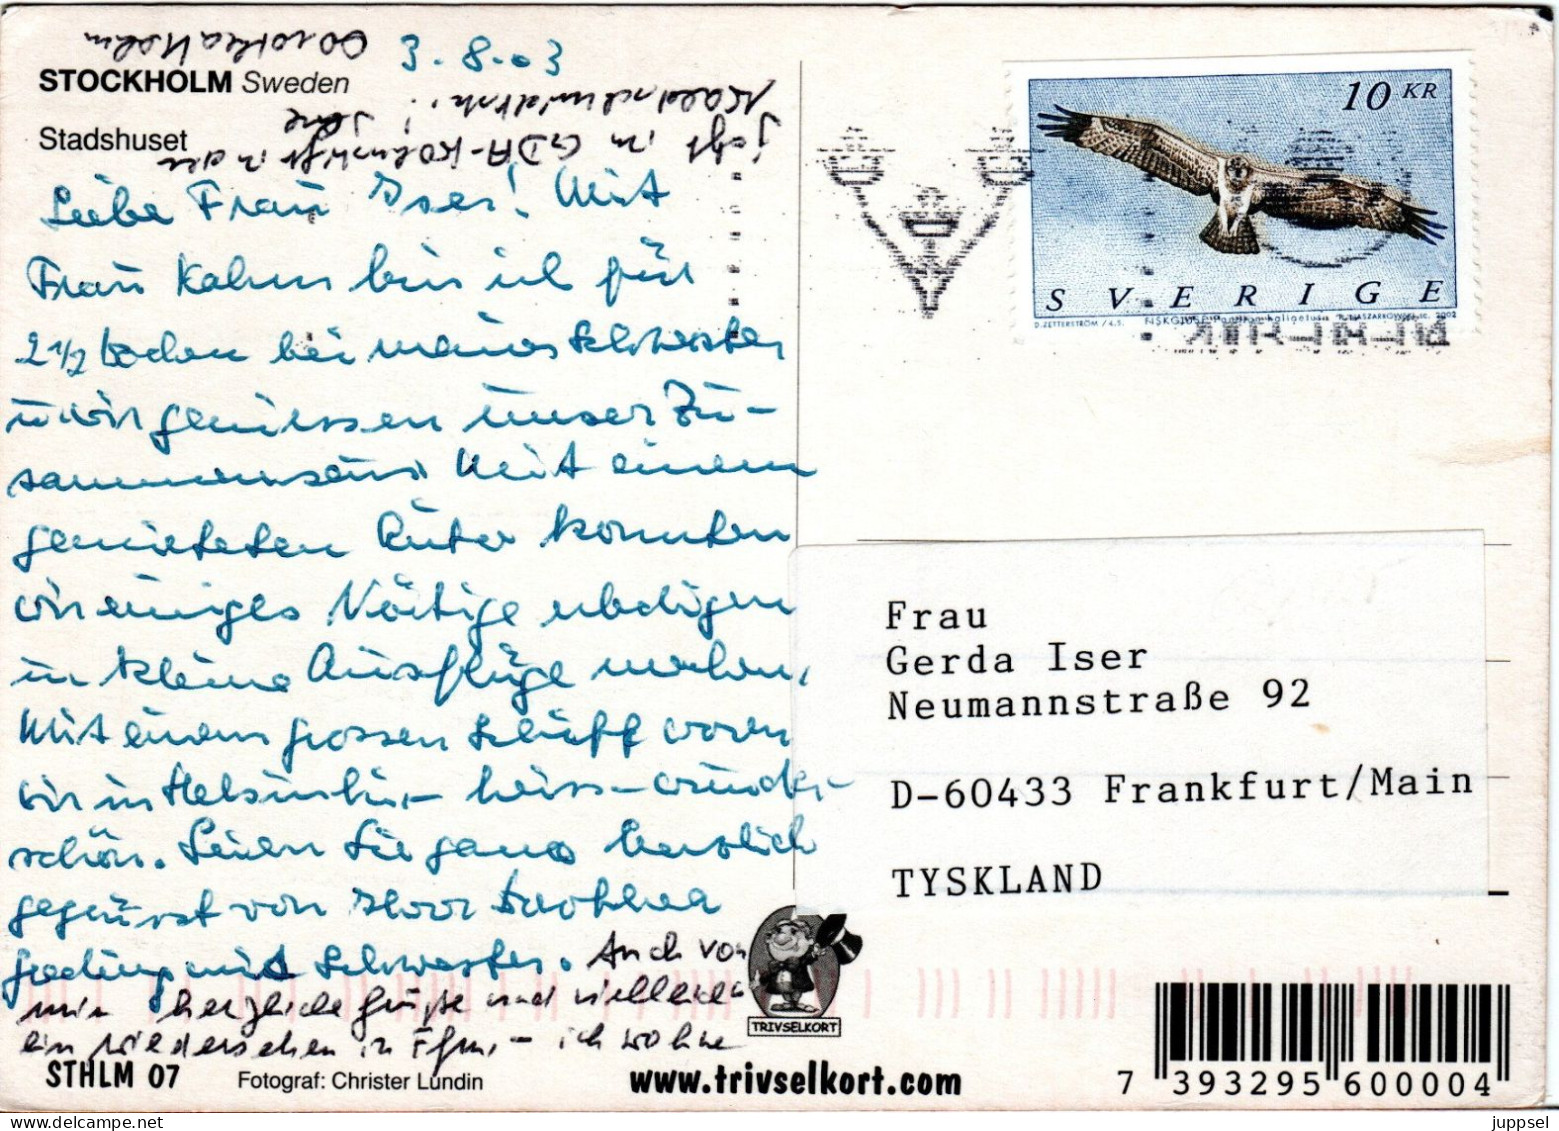 STOCKHOLM Sweden
Stadshuset
3.8.03
Liebe Frau Iser! Mit
Frau Kahm bin ich für
2 1/2 Wochen bei meiner Schwester
u wir geniessen unser Zu-
sammensein. Mit einem
gemieteten Auto konnten
wir einiges Nötige erledigen
u kleine Ausflüge machen,
Mit einem grossen Schiff waren
wir in Helsinki, – heiss – wunder-
schön. Seien Sie ganz herzlich
gegrüsst von Ihrer Dorothea
mit Schwester. Auch von
mir herzliche Grüße und vielleicht
ein Wiedersehen in Ffm, – ich wohne
jetzt in GDA-Wohnstift in der
Waldschmidtstr.! Ihre
Dorothea
10 KR
SVERIGE
D. ZETTERSTRÖM / 4.5. FISKGJUSE Pandion haliaetus P. NASZARKOWSKI sc. 2002
Frau
Gerda Iser
Neumannstraße 92
D-60433 Frankfurt/Main
TYSKLAND
TRIVSELKORT
STHLM 07 Fotograf: Christer Lundin
www.trivselkort.com
7 393295 600004
juppsel